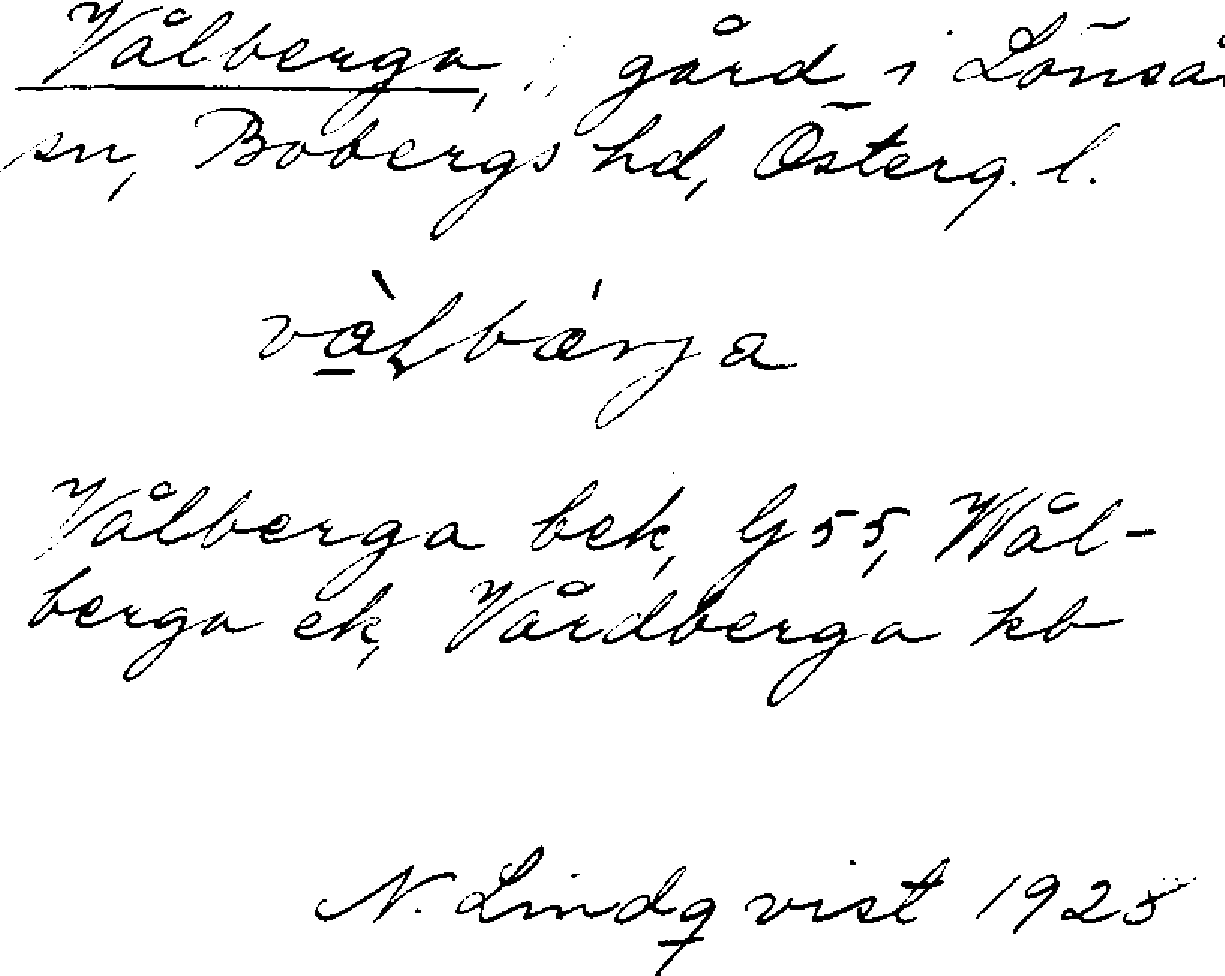 Vålberga, gård i Lönsås
sn, Bobergs hd, Österg. l.
vålbärja
Vålberga bek, G 55, Wål-
berga ek, Vårdberga kb
N. Lindqvist 1925